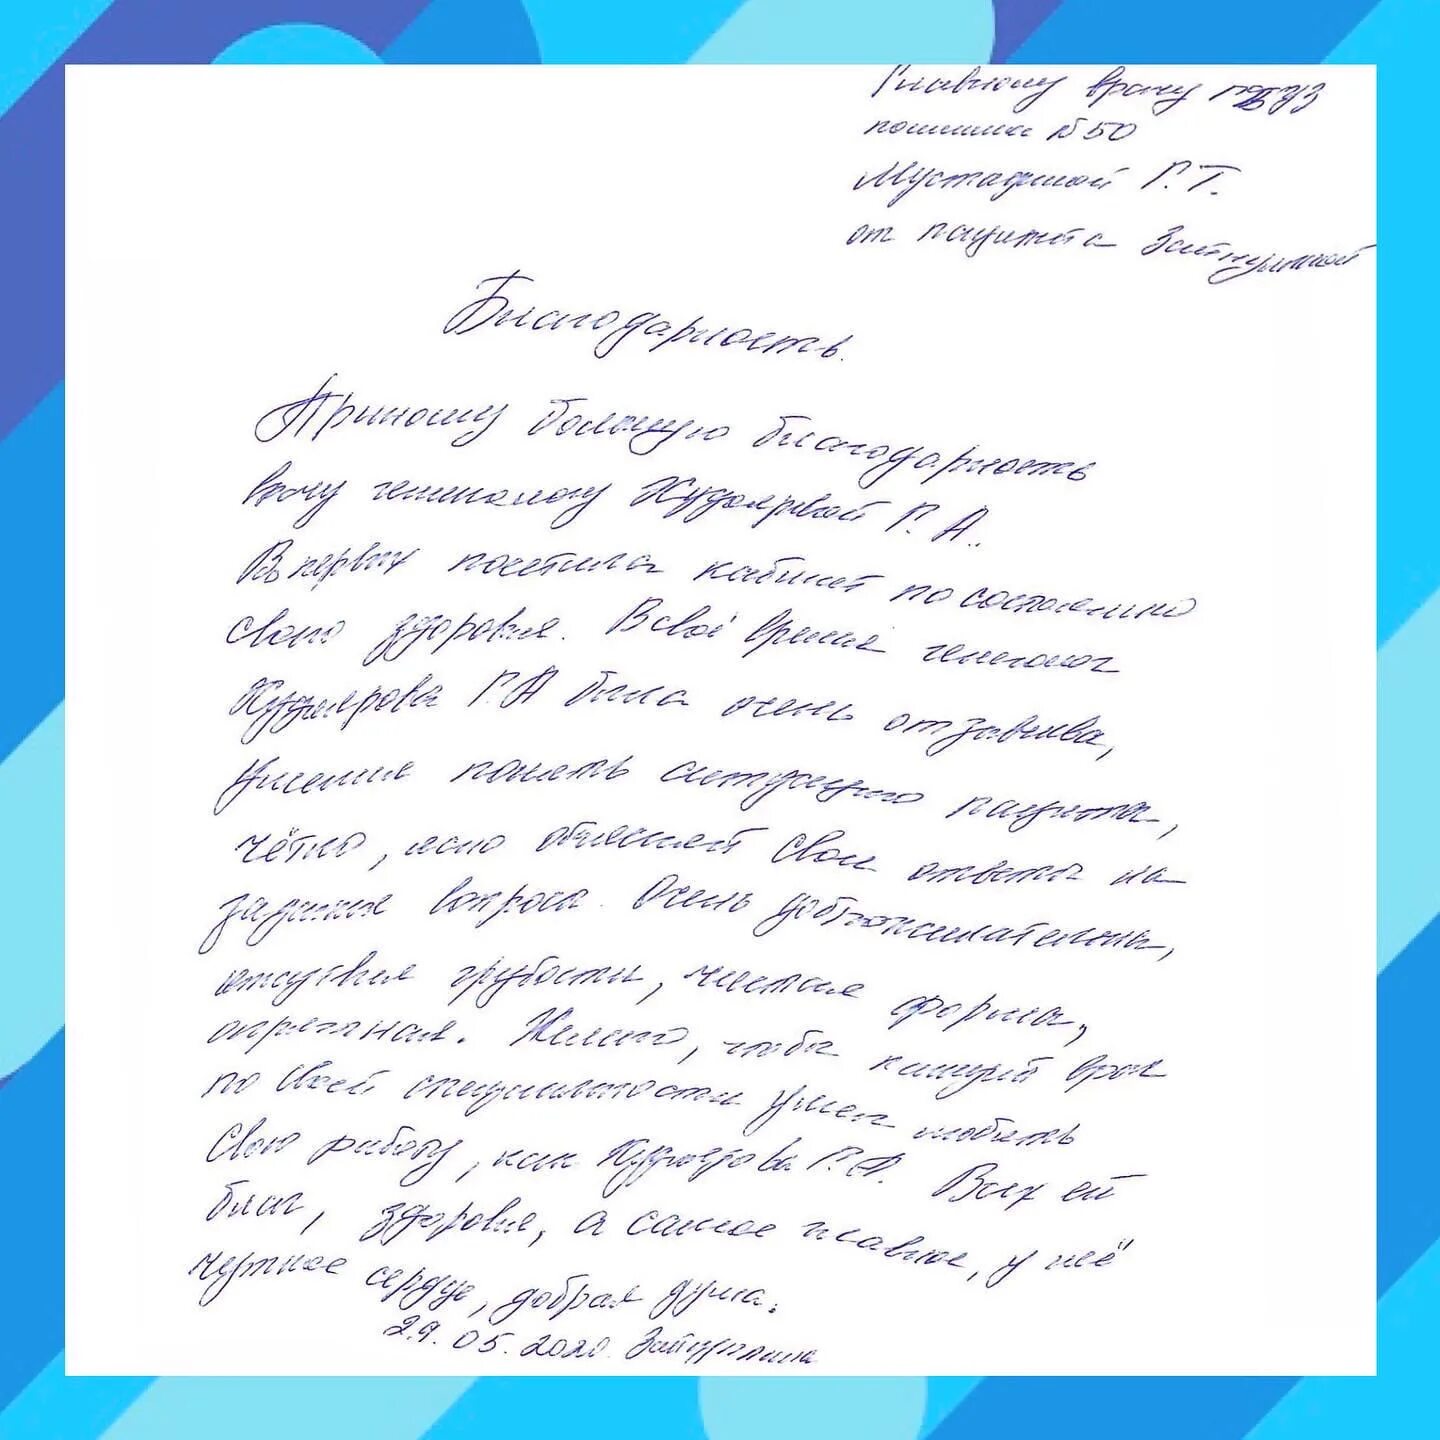 Главному врачу ГБУЗ
поликлиники №50
Мустафиной Г.Т.
от пациента Зайнуллиной
Благодарность.
Приношу большую благодарность
врачу гинекологу Худояровой Г. А..
В первых посетила кабинет по состоянию
своего здоровья. В своё время гинеколог
Худоярова Г.А была очень отзывчива,
умения понять ситуацию пациента,
чётко, ясно объясняет свои ответы на
заданные вопроса. Очень доброжелательна,
отсутствия грубости, чистая форма,
опрятная. Желаю, чтобы каждый врач
по своей специальности умел любить
свою работу, как Худоярова Г.А. Всех ей
благ, здоровья, а самое главное, у неё
чуткое сердце, добрая душа.
29.05.2020. Зайнуллина